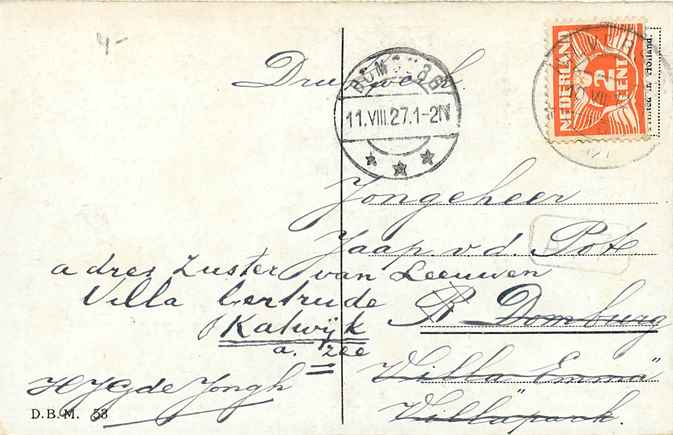 4-
Drukwerk
DOMBURG
11.VIII.27.1-2N
NEDERLAND
2
CENT
Holland.
Jongeheer
Jaap v. d. Pot.
adres Zuster van Leeuwen
Villa Gertrude
Katwijk
a. zee
Domburg
Villa Emma"
Villapark.
HJG de Jongh
D.B.M. 53